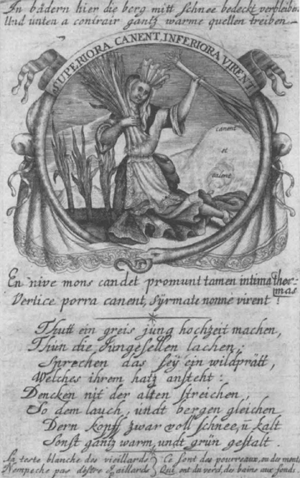 In bädern hier die berg mitt schnee bedeckt verbleiben
Und unten a conirair gantz warme quellen treiben
SUPERIORA CANENT, INFERIORA VIRENT
canent
et
En nive mons candet promunt tamen intima thermas
Vertice porra canent, syrmate nonne virent?
Thutt ein greis jung hochzeit machen,
Thun die Jungesellen lachen;
Sprechen das sey ein wildprätt,
Welches ihrem hatz ansteht:
Dencken nit der alten streichen,
So dem lauch, undt bergen gleichen
Dern kopff zwar voll schnee, ü kalt
Sonst gantz warm, undt grün gestalt.
La teste blanche des vieillards Ce sont des pourreaux, ou des monts
N'empeche pas d'estre gaillards Qui ont du verd, des bains aux fonds.